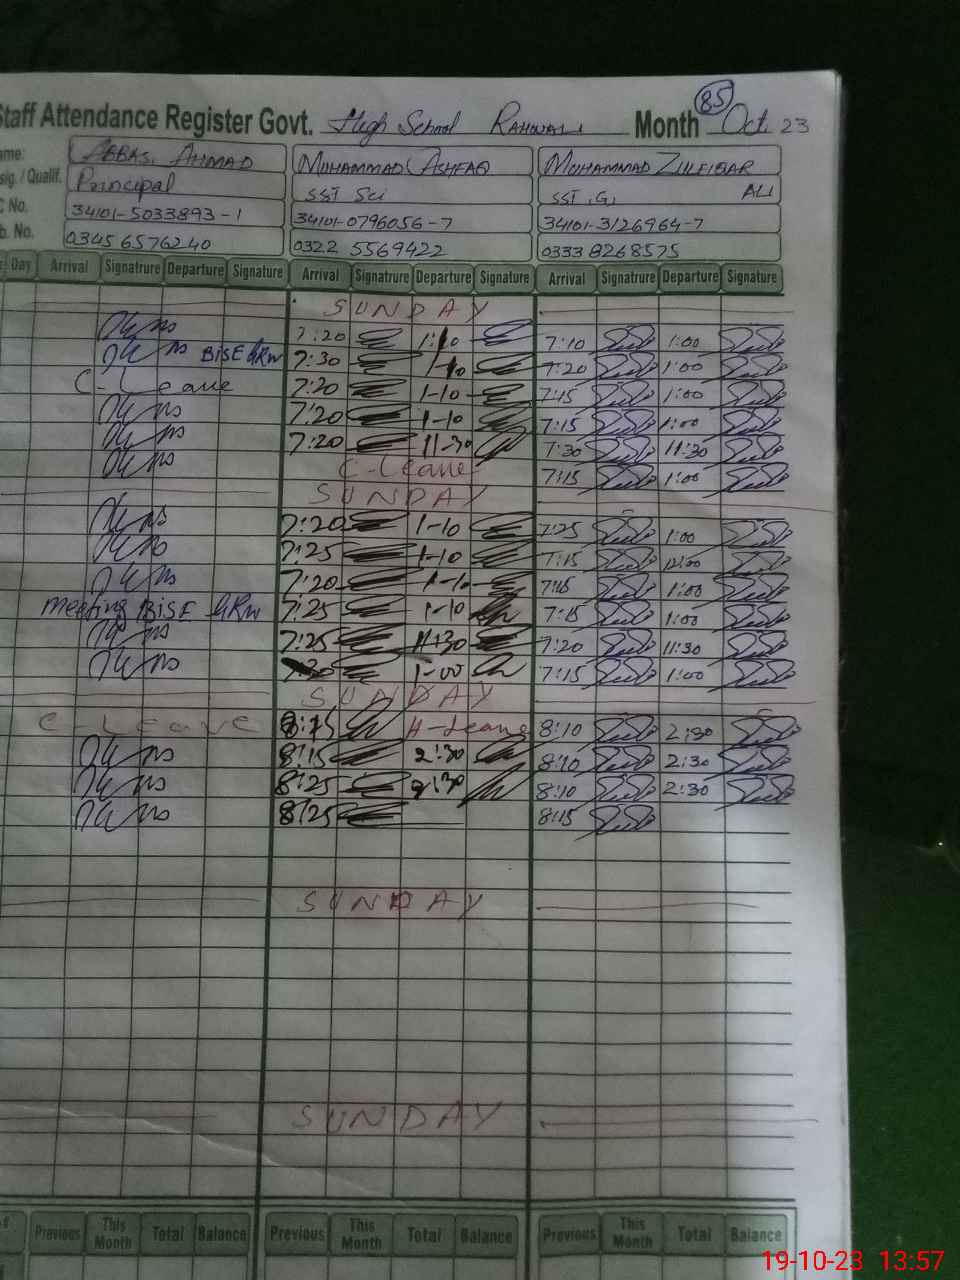 Staff Attendance Register Govt. High School RAHWALI Month Oct. 23
85
ame: ABBAS AHMAD MUHAMMAD ASHFAQ MUHAMMAD ZULFIQAR ALI
sig. / Qualif. Principal SST Sci SST (G)
C No. 34101-5033893-1 34101-0796056-7 34101-3126964-7
b. No. 0345 6576240 0322 5569422 0333 8268575
Day Arrival Signatrure Departure Signature Arrival Signatrure Departure Signature Arrival Signatrure Departure Signature
SUNDAY
7:20 1:10 7:10 1:00
BISE GRW 7:30 1-10 7:20 1:00
C-Leave 7:20 1-10 7:15 1:00
7:20 1-10 7:15 1:00
7:20 11-30 7:30 11:30
C-Leave 7:15 1:00
SUNDAY
7:20 1-10 7:25 1:00
7:25 1-10 7:15
7:20 1-10 7:15 1:00
meeting BISE GRW 7:25 1-10 7:15 1:00
7:25 11:30 7:20 11:30
1-00 7:15 1:00
SUNDAY
C-Leave 8:15 H-Leave 8:10 2:30
8:15 2:30 8:10 2:30
8:25 2:30 8:10 2:30
8:25 8:15
SUNDAY
SUNDAY
Previous This Month Total Balance Previous This Month Total Balance Previous This Month Total Balance
19-10-23 13:57